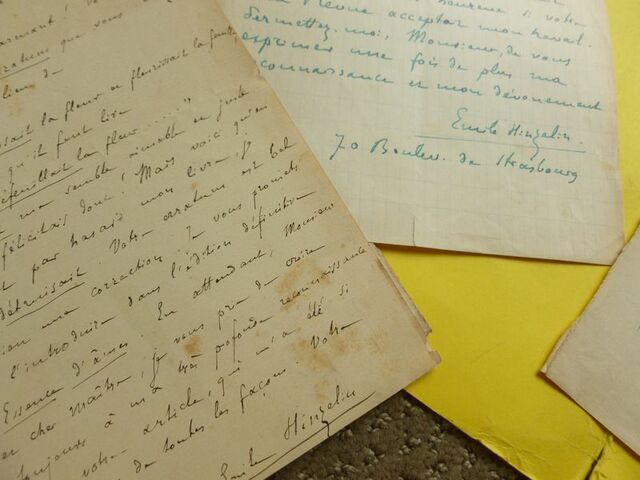 armant
que vous
lieu de
sait la fleur ou fleurissait la faute,
qu'il faut lire
éfeuillait la fleur....."
me semble aimable en juste
félicitais donc! Mais voici qu'en
t par hasard mon livre, j'
détruisait. Votre erratum est bel
ien une correction. Je vous promets
l'introduire dans l'édition définitive
Essence d'âmes. En attendant, Monsieur
er cher Maître, je vous prie de croire
toujours à ma très profonde reconnaissance
votre article, qui m'a été si
de toutes les façons. Votre
Emile Hinzelin
heureux si votre
Revue acceptait mon travail.
Permettez-moi, Monsieur, de vous
exprimer une fois de plus ma
connaissance et mon dévouement
Emile Hinzelin.
70 Boulev. de Strasbourg